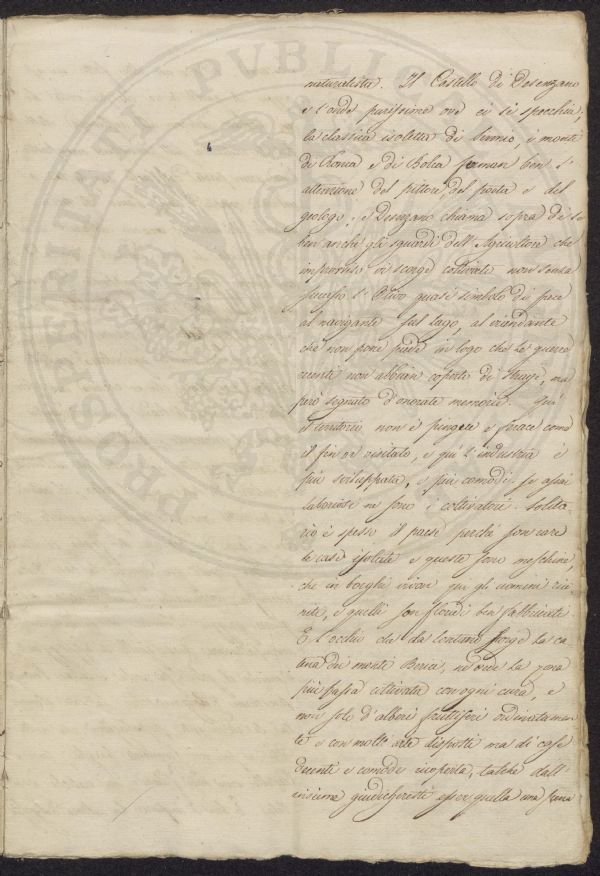 PROSPERITATI PVBLICAE
naturalista. Il Castello di Desenzano
e l'onde purissime ove ei si specchia,
la classica isoletta di Sirmio, i monti
di Ronca e di Bolca fermar ben l'
attenzione del pittore, del poeta e del
geologo, e Desenzano chiama sopra di se
ben anche gli sguardi dell'Agricoltore che
improvviso vi scorge coltivato non senza
successo l'Olivo quasi simbolo di pace
al navigante sul lago, al viandante
che non pone piede in logo che le guerre
recenti non abbian coperto di stragi, ma
però segnato d'onorate memorie. Qui
il territorio non è pingue e ferace come
il fin or visitato, e qui l'industria è
più sviluppata, e più comodi se assai
laboriosi ne sono i coltivatori. Solita
rio è spesso il paese perchè son rare
le case isolate e queste sono meschine,
che in borghi vivon qui gli uomini riu
niti, e quelli son floridi ben fabbricati
E l'occhio che da lontano scorge la ca
tena dei monti Berici, ne vede la zona
più bassa coltivata con ogni cura, e
non solo d'alberi fruttiferi ordinatamen
te e con molt'arte disposti ma di case
decenti e comode ricoperta, talchè dall'
insieme giudichereste esser quella una